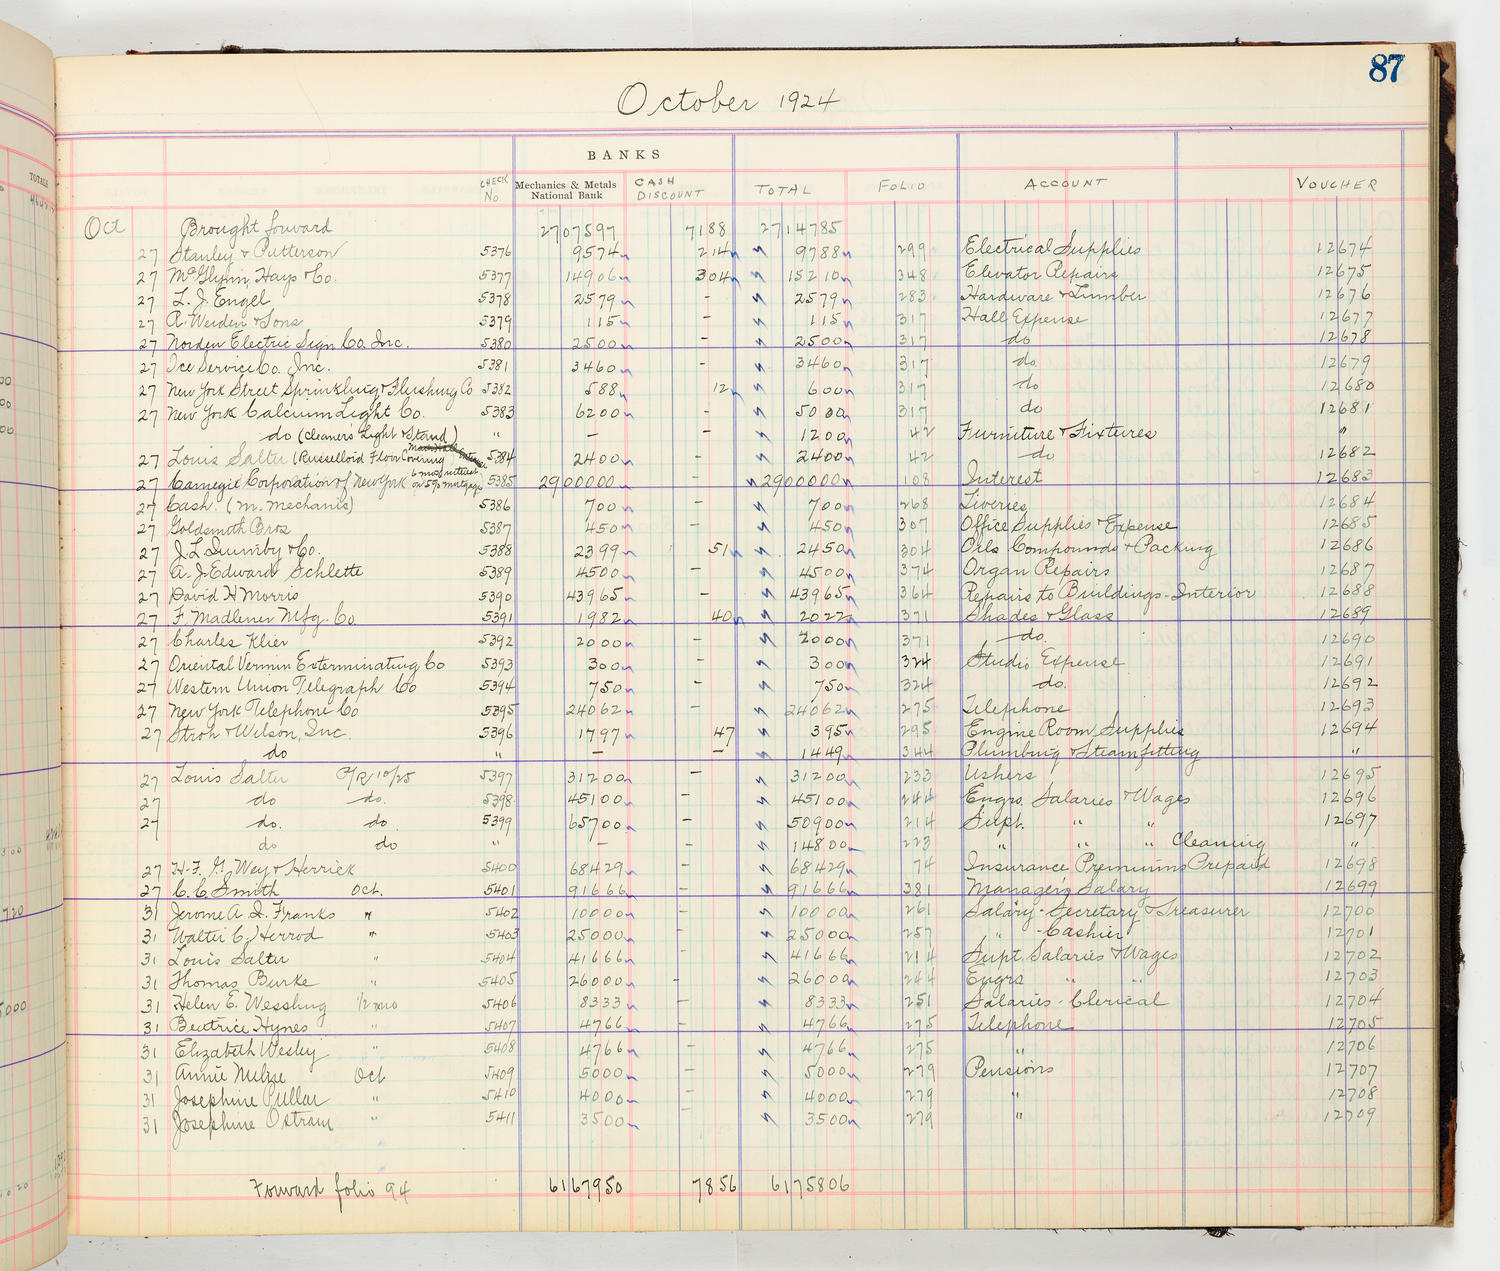 87
October 1924
BANKS
CHECK No. Mechanics & Metals National Bank CASH DISCOUNT TOTAL FOLIO ACCOUNT VOUCHER
Oct Brought forward 2707597 7188 2714785
27 Stanley & Patterson 5376 9574 214 9788 299 Electrical Supplies 12674
27 McGlynn Hays & Co. 5377 14906 304 15210 348 Elevator Repairs 12675
27 L. J. Engel 5378 2579 - 2579 283 Hardware & Lumber 12676
27 A. Werden & Sons 5379 115 - 115 317 Hall Expense 12677
27 Norden Electric Sign Co. Inc. 5380 2500 - 2500 317 do 12678
27 Ice Service Co. Inc. 5381 3460 - 3460 317 do. 12679
27 New York Street Sprinkling & Flushing Co 5382 588 12 600 317 do 12680
27 New York Calcium Light Co. 5383 6200 - 5000 317 do 12681
do (Cleaners Light & Stand) " - - 1200 42 Furniture & Fixtures "
27 Louis Salter (Russelloid Floor Covering 5384 2400 - 2400 42 do 12682
27 Carnegie Corporation of New York 6 mos interest on 5% mortgage 5385 2900000 - 2900000 108 Interest 12683
27 Cash. (M. Mechanic) 5386 700 - 700 268 Liveries 12684
27 Goldsmith Bros 5387 450 - 450 307 Office Supplies & Expense 12685
27 J. L. Quimby & Co. 5388 2399 51 2450 304 Oils Compounds & Packing 12686
27 A. J. Edward Schlette 5389 4500 - 4500 374 Organ Repairs 12687
27 David H Morris 5390 43965 - 43965 364 Repairs to Buildings - Interior 12688
27 F. Madlener Mfg. Co 5391 1982 40 2022 371 Shades & Glass 12689
27 Charles Klier 5392 2000 - 2000 371 do. 12690
27 Oriental Vermin Exterminating Co 5393 300 - 300 324 Studio Expense 12691
27 Western Union Telegraph Co 5394 750 - 750 324 do. 12692
27 New York Telephone Co 5395 24062 - 24062 275 Telephone 12693
27 Stroh & Wilson, Inc. 5396 1797 47 395 295 Engine Room Supplies 12694
do " - - 1449 344 Plumbing & Steamfitting "
27 Louis Salter P/R 10/25 5397 31200 - 31200 233 Ushers 12695
27 do do. 5398 45100 - 45100 244 Engrs. Salaries & Wages 12696
27 do. do. 5399 65700 - 50900 214 Supt. " " 12697
do do " - 14800 223 " " " Cleaning "
27 H. F. G. Wey & Herrick 5400 68429 - 68429 74 Insurance Premiums Prepaid 12698
27 C. C. Smith Oct. 5401 91666 - 91666 381 Manager's Salary 12699
31 Jerome A. Q. Franks " 5402 10000 - 10000 261 Salary - Secretary & Treasurer 12700
31 Walter C. Herrod " 5403 25000 - 25000 257 " - Cashier 12701
31 Louis Salter " 5404 41666 - 41666 214 Supt. Salaries & Wages 12702
31 Thomas Burke " 5405 26000 - 26000 244 Engrs " " 12703
31 Helen E. Wessling 1/2 mo 5406 8333 - 8333 251 Salaries - Clerical 12704
31 Beatrice Hynes " 5407 4766 - 4766 275 Telephone 12705
31 Elizabeth Wesley " 5408 4766 - 4766 275 " 12706
31 Annie Milne Oct 5409 5000 - 5000 279 Pensions 12707
31 Josephine Pullar " 5410 4000 - 4000 279 " 12708
31 Josephine Ostram " 5411 3500 - 3500 279 " 12709
Forward folio 94 6167950 7856 6175806